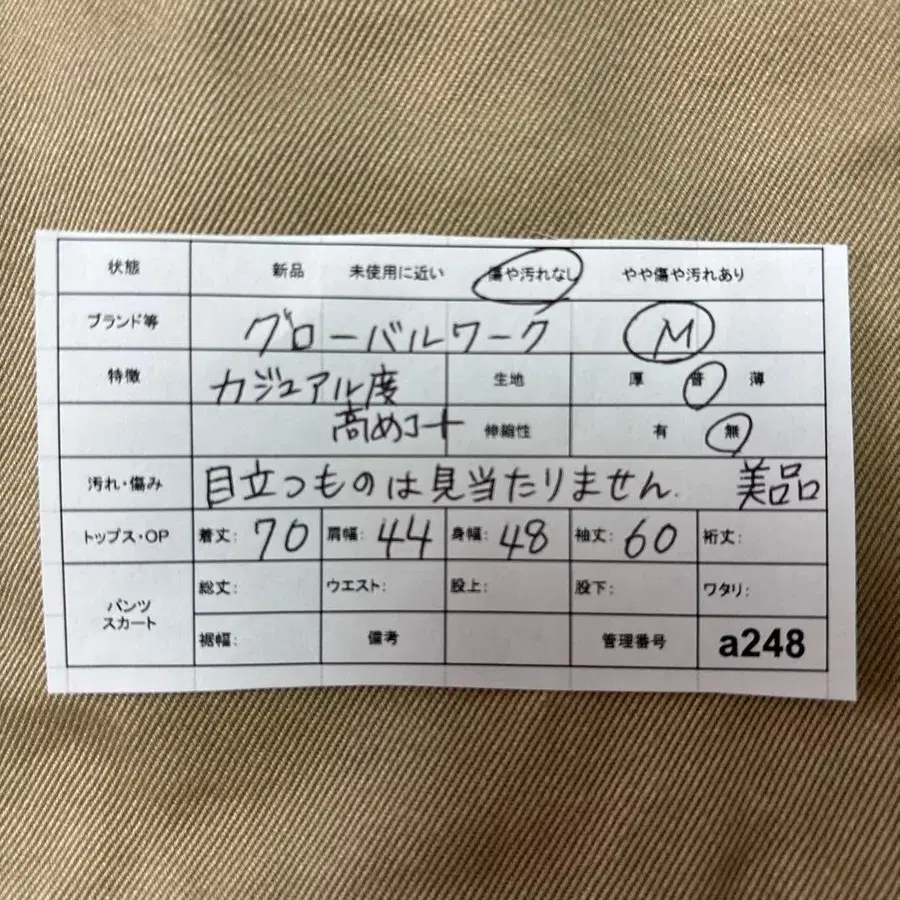 状態 新品 未使用に近い 傷や汚れなし やや傷や汚れあり
ブランド等 グローバルワーク M
特徴 カジュアル度 生地 厚 普 薄
高めコート 伸縮性 有 無
汚れ・傷み 目立つものは見当たりません. 美品
トップス・OP 着丈: 70 肩幅: 44 身幅: 48 袖丈: 60 裄丈:
パンツ スカート 総丈: ウエスト: 股上: 股下: ワタリ:
裾幅: 備考 管理番号 a248